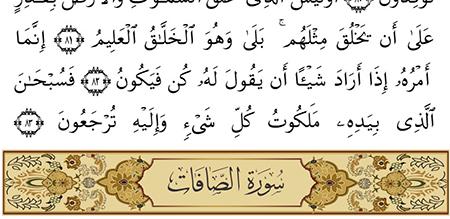 تُوقِدُونَ ۝٨٠ أَوَلَيْسَ ٱلَّذِى خَلَقَ ٱلسَّمَـٰوَٰتِ وَٱلْأَرْضَ بِقَـٰدِرٍ
عَلَىٰٓ أَن يَخْلُقَ مِثْلَهُم ۚ بَلَىٰ وَهُوَ ٱلْخَلَّـٰقُ ٱلْعَلِيمُ ۝٨١ إِنَّمَآ
أَمْرُهُۥٓ إِذَآ أَرَادَ شَيْـًٔا أَن يَقُولَ لَهُۥ كُن فَيَكُونُ ۝٨٢ فَسُبْحَـٰنَ
ٱلَّذِى بِيَدِهِۦ مَلَكُوتُ كُلِّ شَىْءٍ وَإِلَيْهِ تُرْجَعُونَ ۝٨٣
سُورَةُ الصَّافَاتِ